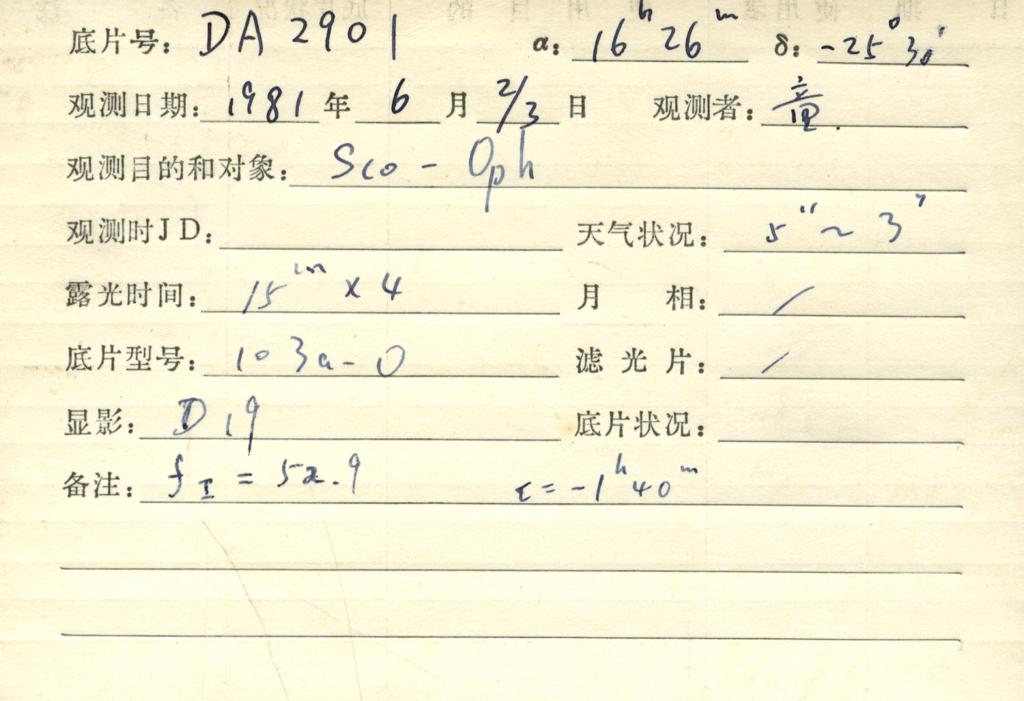 底片号: DA 2901 α: 16h 26m δ: -25° 30'
观测日期: 1981 年 6 月 2/3 日 观测者: 童
观测目的和对象: Sco - Oph
观测时JD: 天气状况: 5" ~ 3"
露光时间: 15m × 4 月 相: /
底片型号: 103a-O 滤光片: /
显影: D19 底片状况:
备注: fI = 52.9 t = -1h 40m